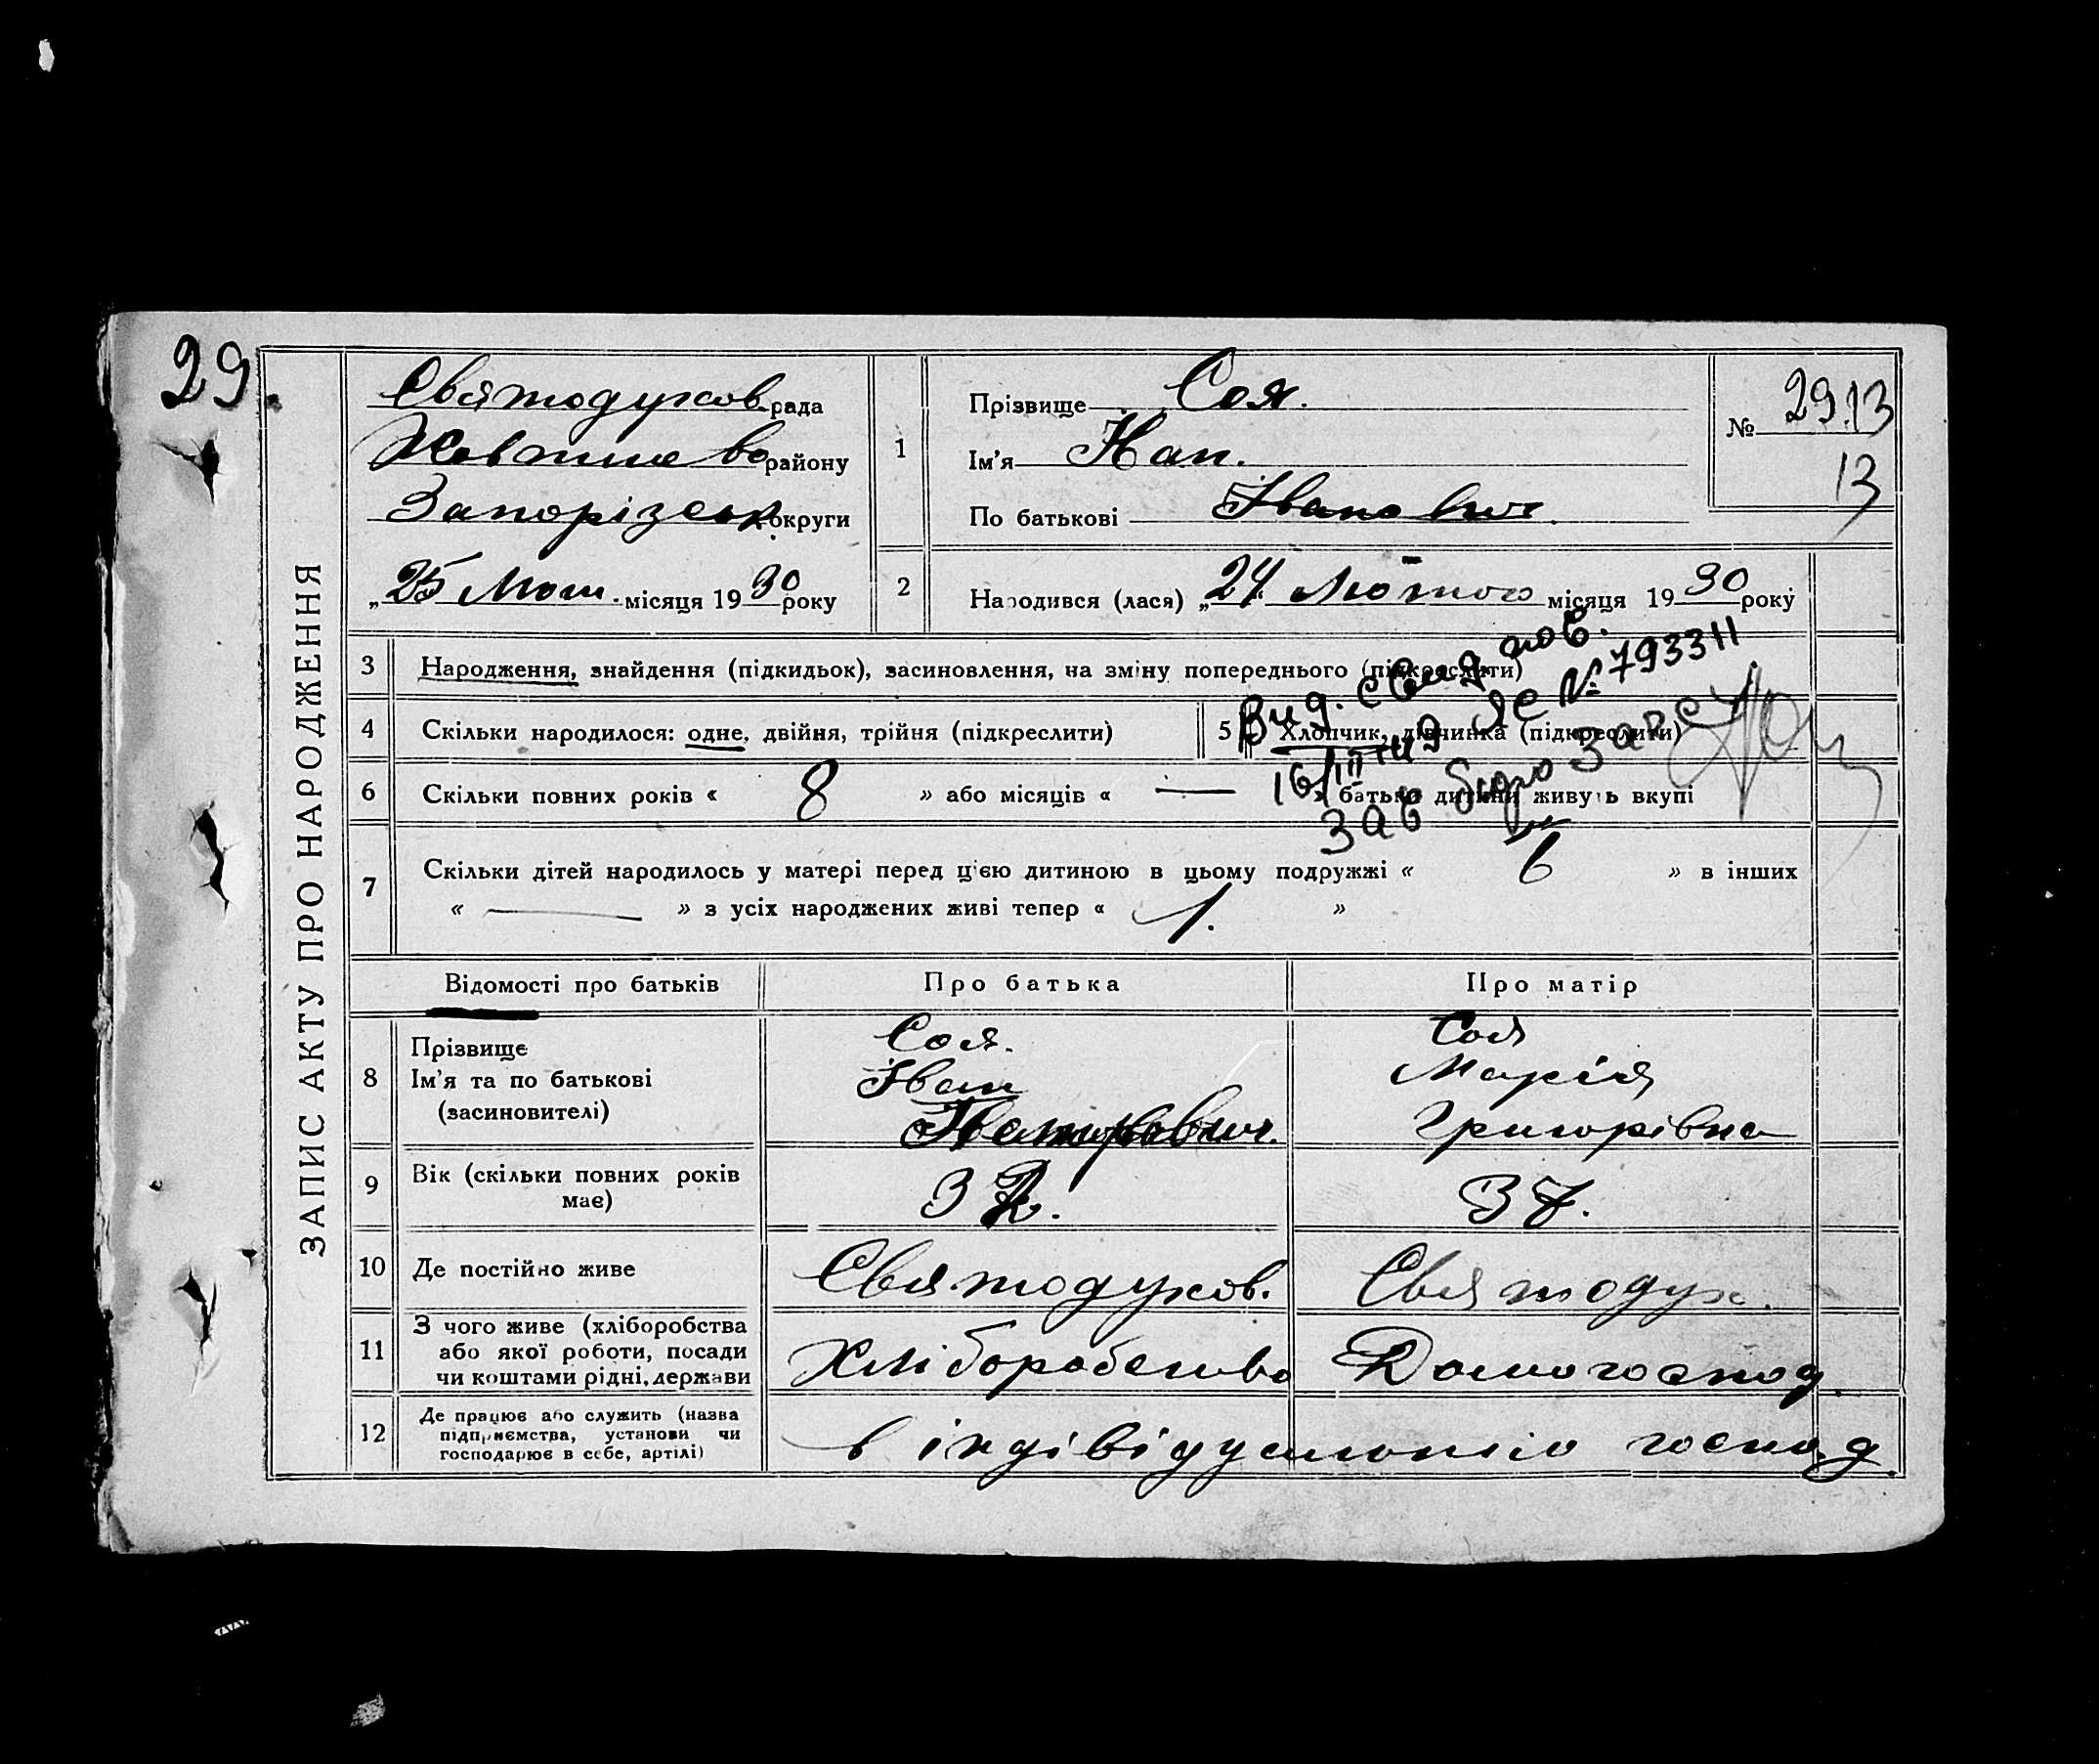 29.
ЗАПИС АКТУ ПРО НАРОДЖЕННЯ
Святодухов. рада
району
Запорізськ округи
„25 Лют. місяця 1930 року
1
Прізвище Соя.
Ім'я
По батькові Іванович.
№ 29.13
13
2
Народився (лася) „24 Лютого місяця 1930 року
3 Народження, знайдення (підкидьок), засиновлення, на зміну попереднього (підкреслити)
4 Скільки народилося: одне, двійня, трійня (підкреслити)
5 Хлопчик, дівчинка (підкреслити)
Вид. свид. пов.
ЯС № 793311
16/III
зав бюро загс
6 Скільки повних років « 8 » або місяців « — » батьки дитини живуть вкупі
7 Скільки дітей народилось у матері перед цією дитиною в цьому подружжі « 6 » в інших
« — » з усіх народжених живі тепер « 1. »
Відомості про батьків Про батька Про матір
8 Прізвище Соя. Соя
Ім'я та по батькові Іван Марія
(засиновителі) Григорівна
9 Вік (скільки повних років має) 37.
10 Де постійно живе Святодухов. Святодух.
11 З чого живе (хліборобства або якої роботи, посади чи коштами рідні, держави Хліборобство Домогоспод.
12 Де працює або служить (назва підприємства, установи чи господарює в себе, артілі) в індівідуальнію господ.